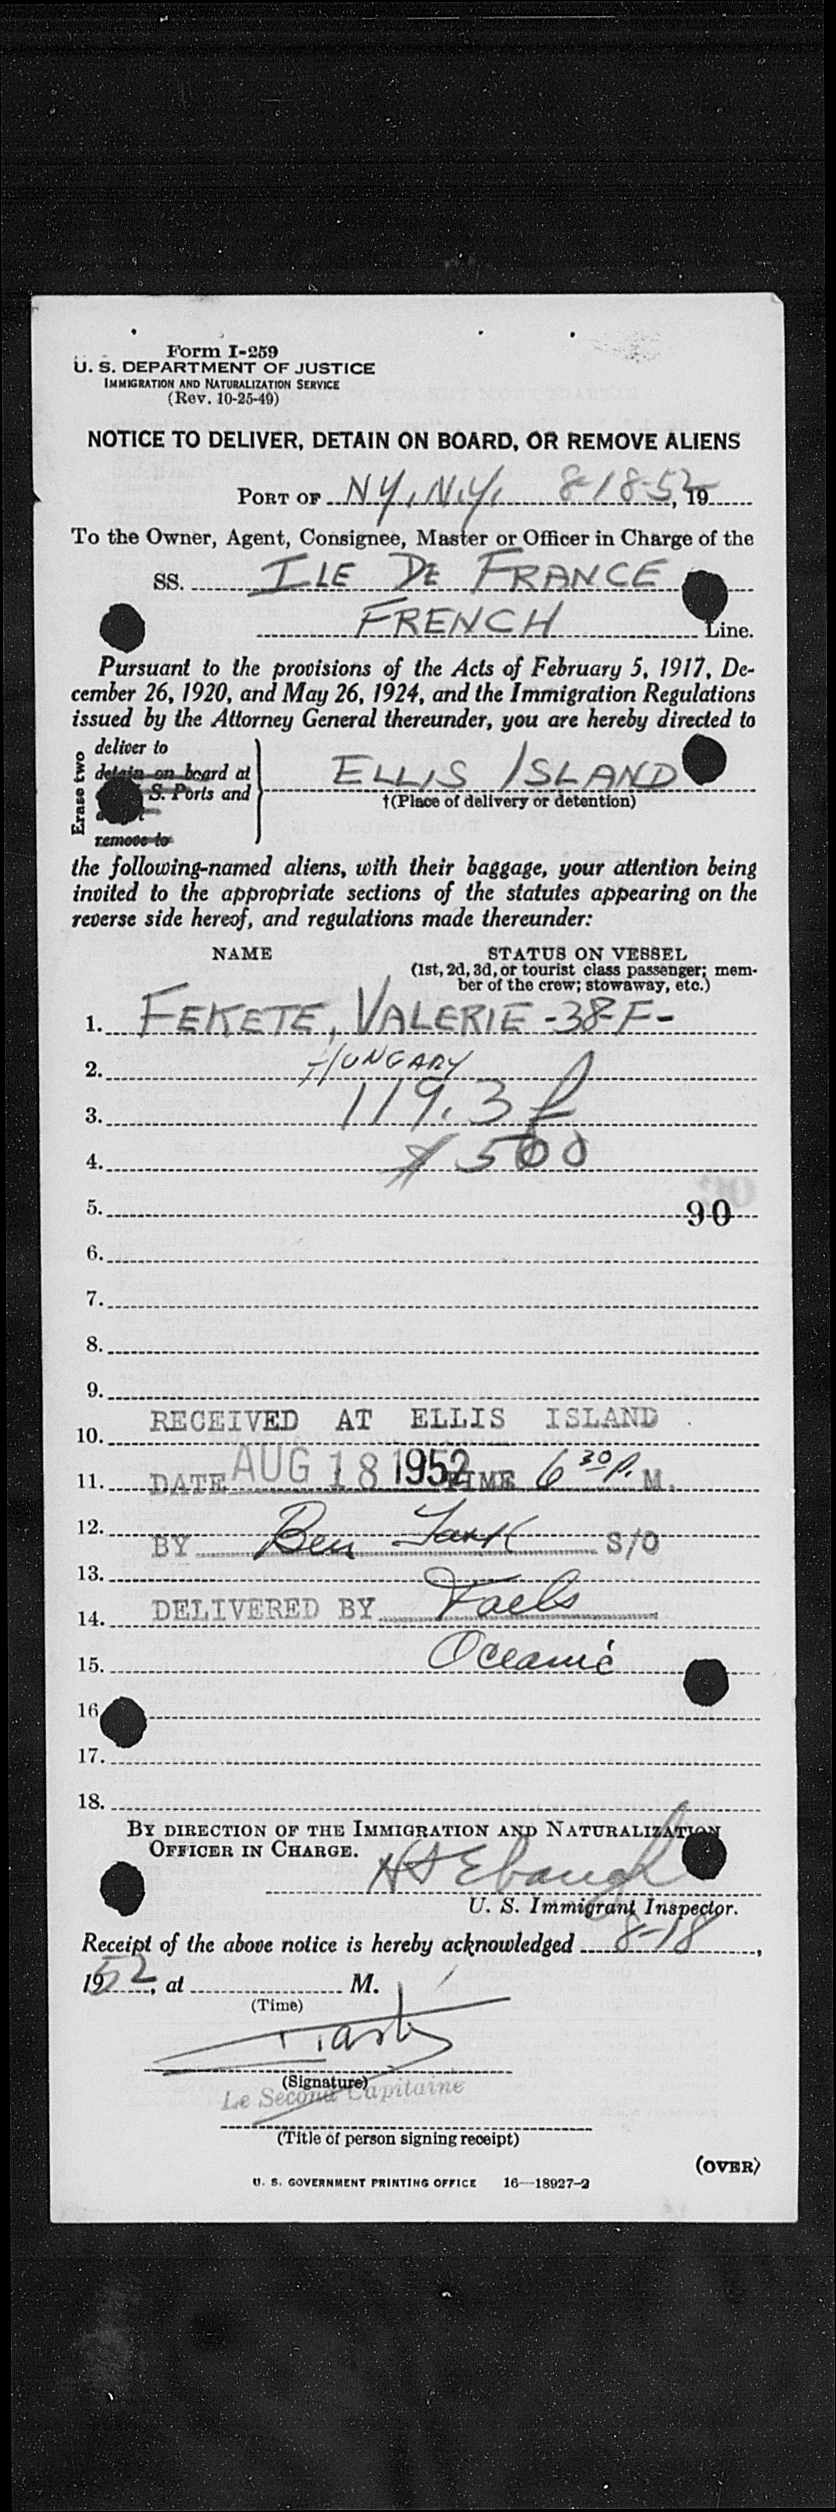 Form I-259
U. S. DEPARTMENT OF JUSTICE
IMMIGRATION AND NATURALIZATION SERVICE
(Rev. 10-25-49)
NOTICE TO DELIVER, DETAIN ON BOARD, OR REMOVE ALIENS
PORT OF NY, N.Y. 8-18-52, 19
To the Owner, Agent, Consignee, Master or Officer in Charge of the
SS. ILE DE FRANCE
FRENCH Line.
Pursuant to the provisions of the Acts of February 5, 1917, De-
cember 26, 1920, and May 26, 1924, and the Immigration Regulations
issued by the Attorney General thereunder, you are hereby directed to
Erase two
deliver to
detain on board at
S. Ports and
remove to
ELLIS ISLAND
†(Place of delivery or detention)
the following-named aliens, with their baggage, your attention being
invited to the appropriate sections of the statutes appearing on the
reverse side hereof, and regulations made thereunder:
NAME STATUS ON VESSEL
(1st, 2d, 3d, or tourist class passenger; mem-
ber of the crew; stowaway, etc.)
1. FEKETE, VALERIE -38-F-
2. HUNGARY
3. 119.3
4. 500
5. 90
6.
7.
8.
9.
RECEIVED AT ELLIS ISLAND
10.
11. DATE AUG 18 1952 TIME 6 30 P. M.
12. BY Ben S/O
13.
14. DELIVERED BY
15. Oceanic
16
17.
18.
BY DIRECTION OF THE IMMIGRATION AND NATURALIZATION
OFFICER IN CHARGE.
U. S. Immigrant Inspector.
Receipt of the above notice is hereby acknowledged 8-18,
1952, at M.
(Time)
(Signature)
Le Second Capitaine
(Title of person signing receipt)
(OVER)
U. S. GOVERNMENT PRINTING OFFICE 16—18927-2